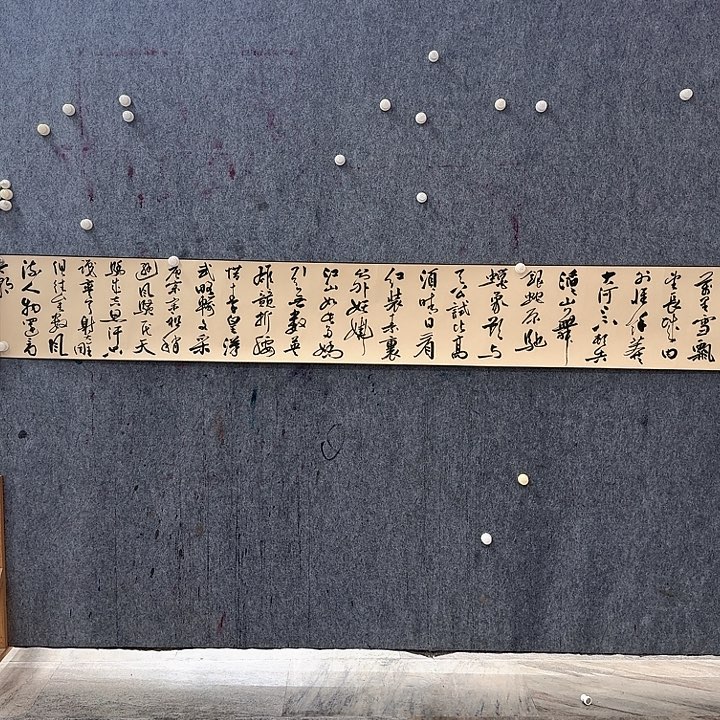 萬里雪飄
望長城内
外惟餘莽
大河上下頓失
滔滔山舞
銀蛇原馳
蠟象欲與
天公試比高
須晴日看
紅裝素裹
分外妖嬈
江山如此多嬌
引無數英
雄競折腰
惜秦皇漢
武略輸文采
唐宗宋祖稍
遜風騷一代天
驕成吉思汗只
識彎弓射大雕
俱往矣數風
流人物還看
今朝